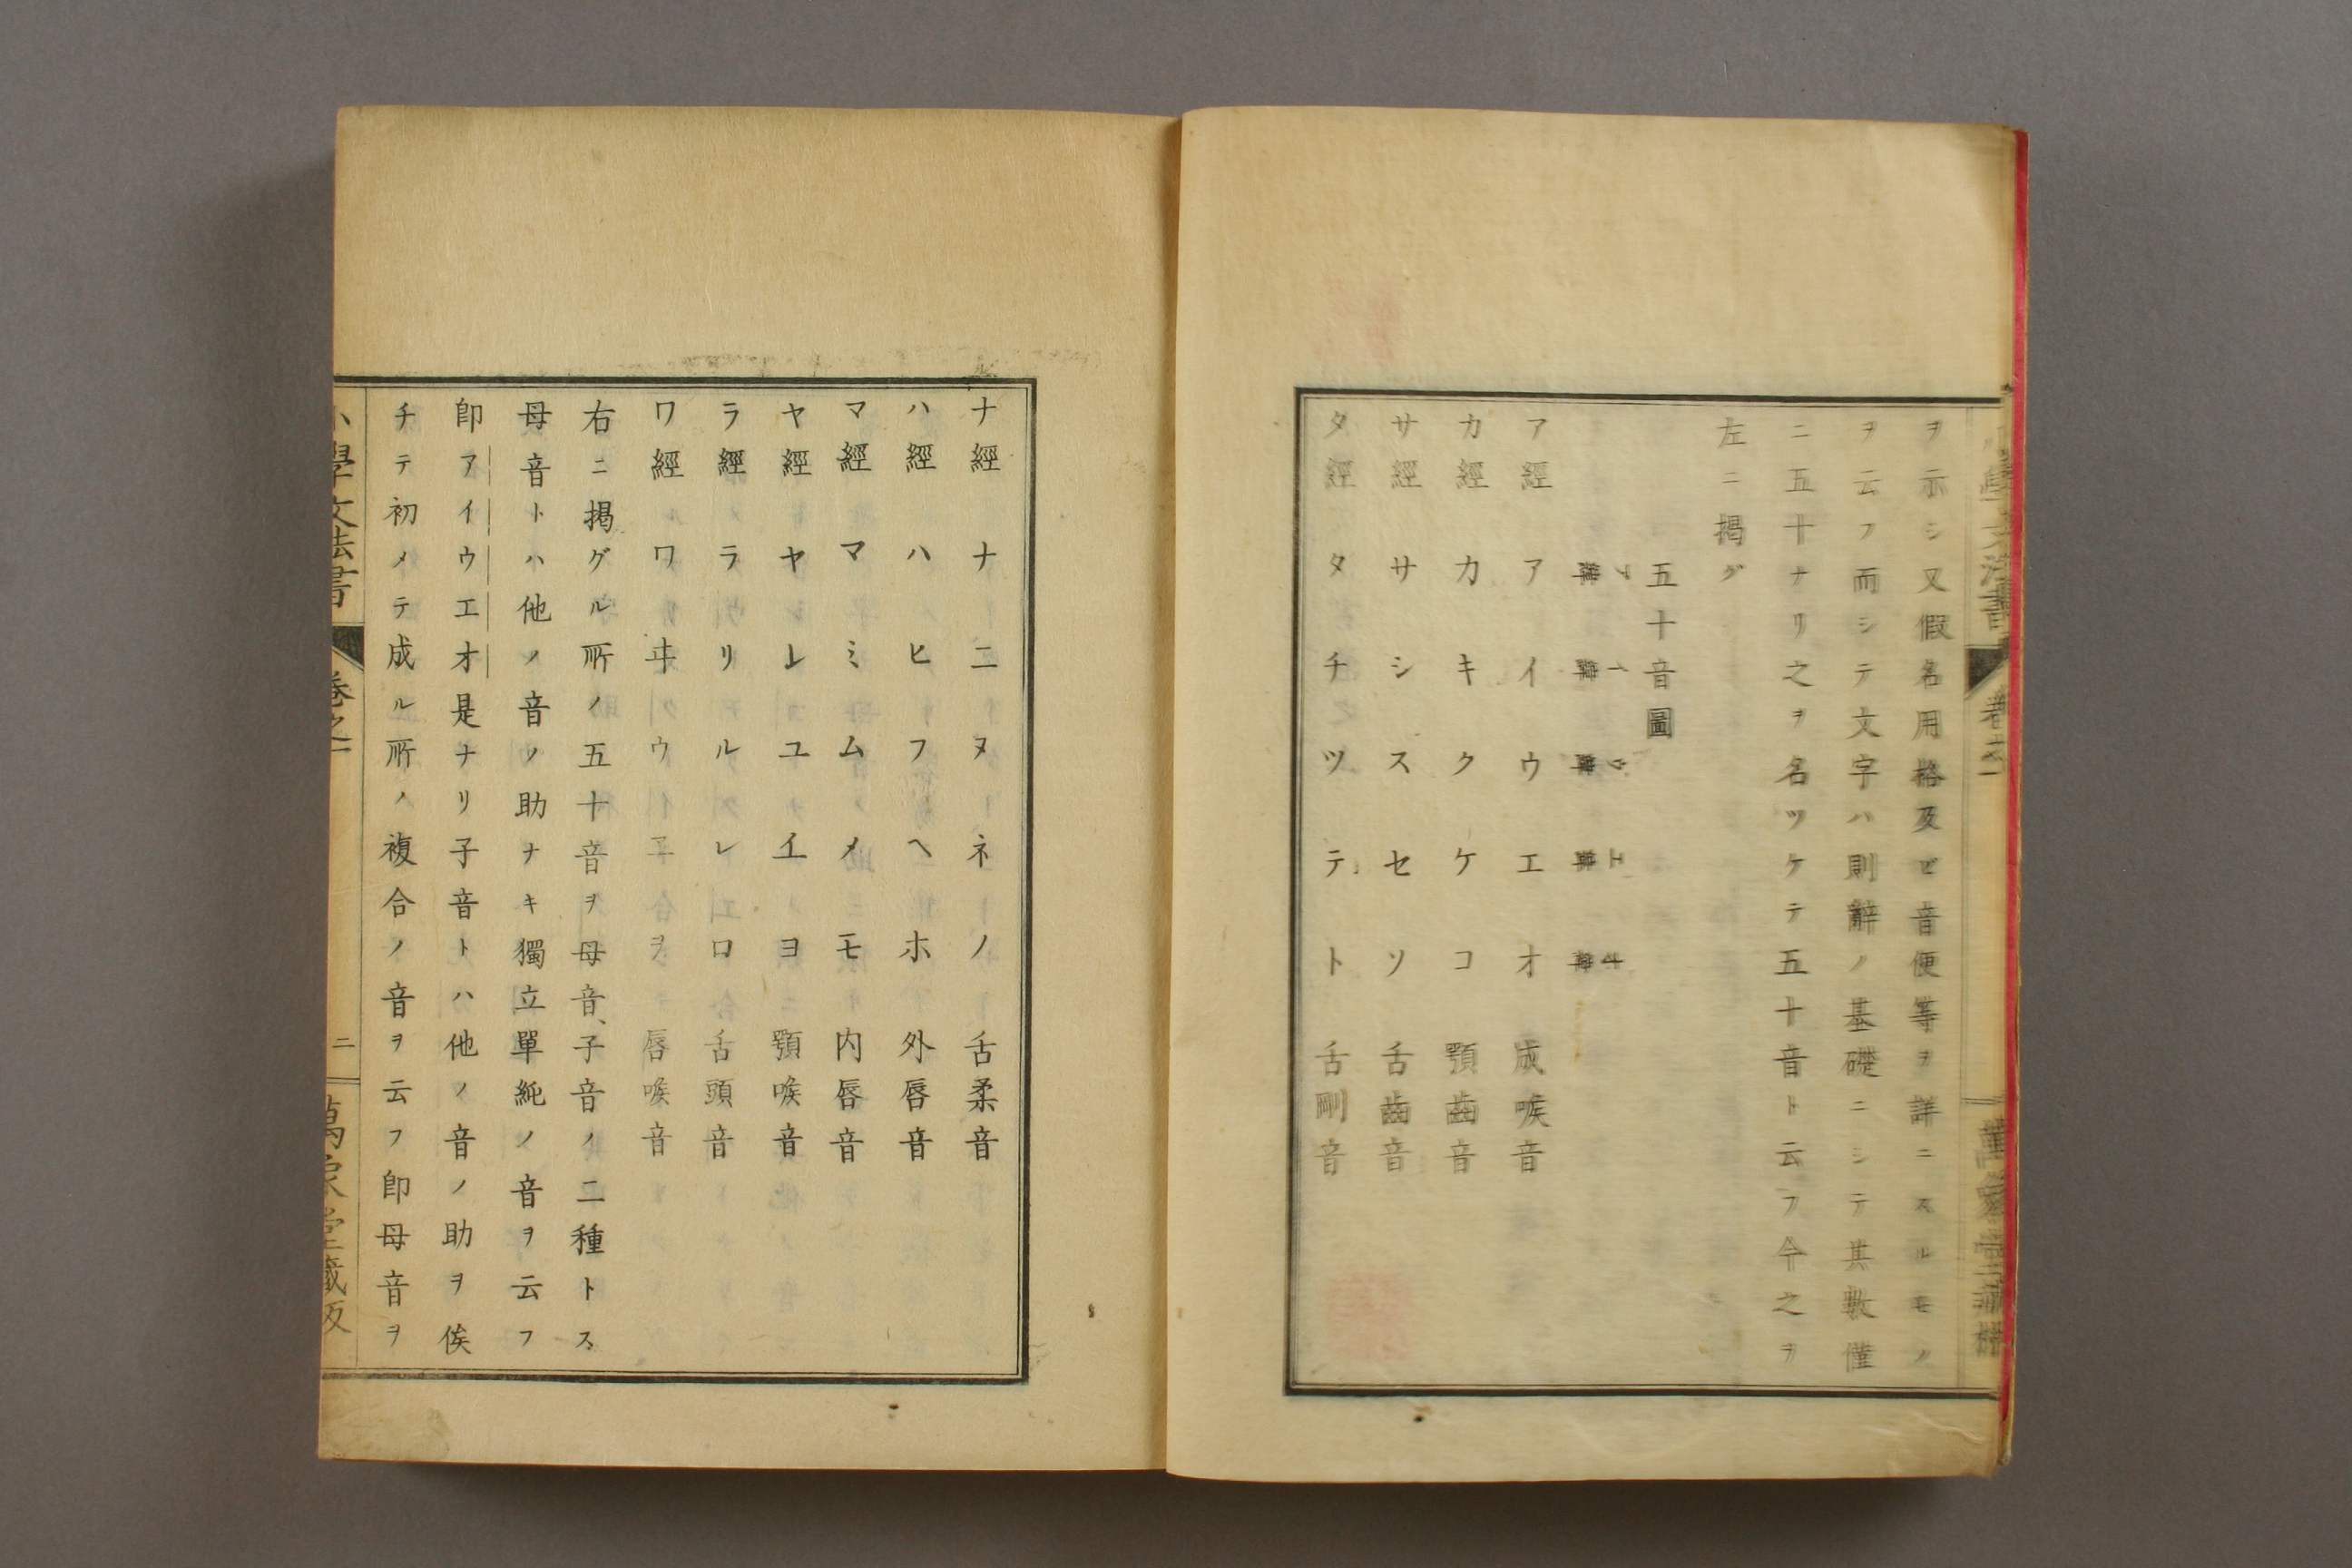 小學文法書 卷之一 萬象堂藏版
ヲ示シ又假名用格及ビ音便等ヲ詳ニスルモノ
ヲ云フ而シテ文字ハ則辭ノ基礎ニシテ其數僅
ニ五十ナリ之ヲ名ツケテ五十音ト云フ今之ヲ
左ニ掲グ
五十音圖
ア緯 イ緯 ウ緯 エ緯 オ緯
ア經 ア イ ウ エ オ 成喉音
カ經 カ キ ク ケ コ 顎齒音
サ經 サ シ ス セ ソ 舌齒音
タ經 タ チ ツ テ ト 舌剛音
ナ經 ナ ニ ヌ ネ ノ 舌柔音
ハ經 ハ ヒ フ ヘ ホ 外唇音
マ經 マ ミ ム メ モ 内唇音
ヤ經 ヤ 𛄠 ユ 𛄡 ヨ 顎喉音
ラ經 ラ リ ル レ ロ 舌頭音
ワ經 ワ ヰ ウ ヱ ヲ 唇喉音
右ニ掲グル所ノ五十音ヲ母音、子音ノ二種トス
母音トハ他ノ音ノ助ナキ獨立單純ノ音ヲ云フ
卽アイウエオ是ナリ子音トハ他ノ音ノ助ヲ俟
チテ初メテ成ル所ノ複合ノ音ヲ云フ卽母音ヲ
小學文法書 卷之一 二 萬象堂藏版